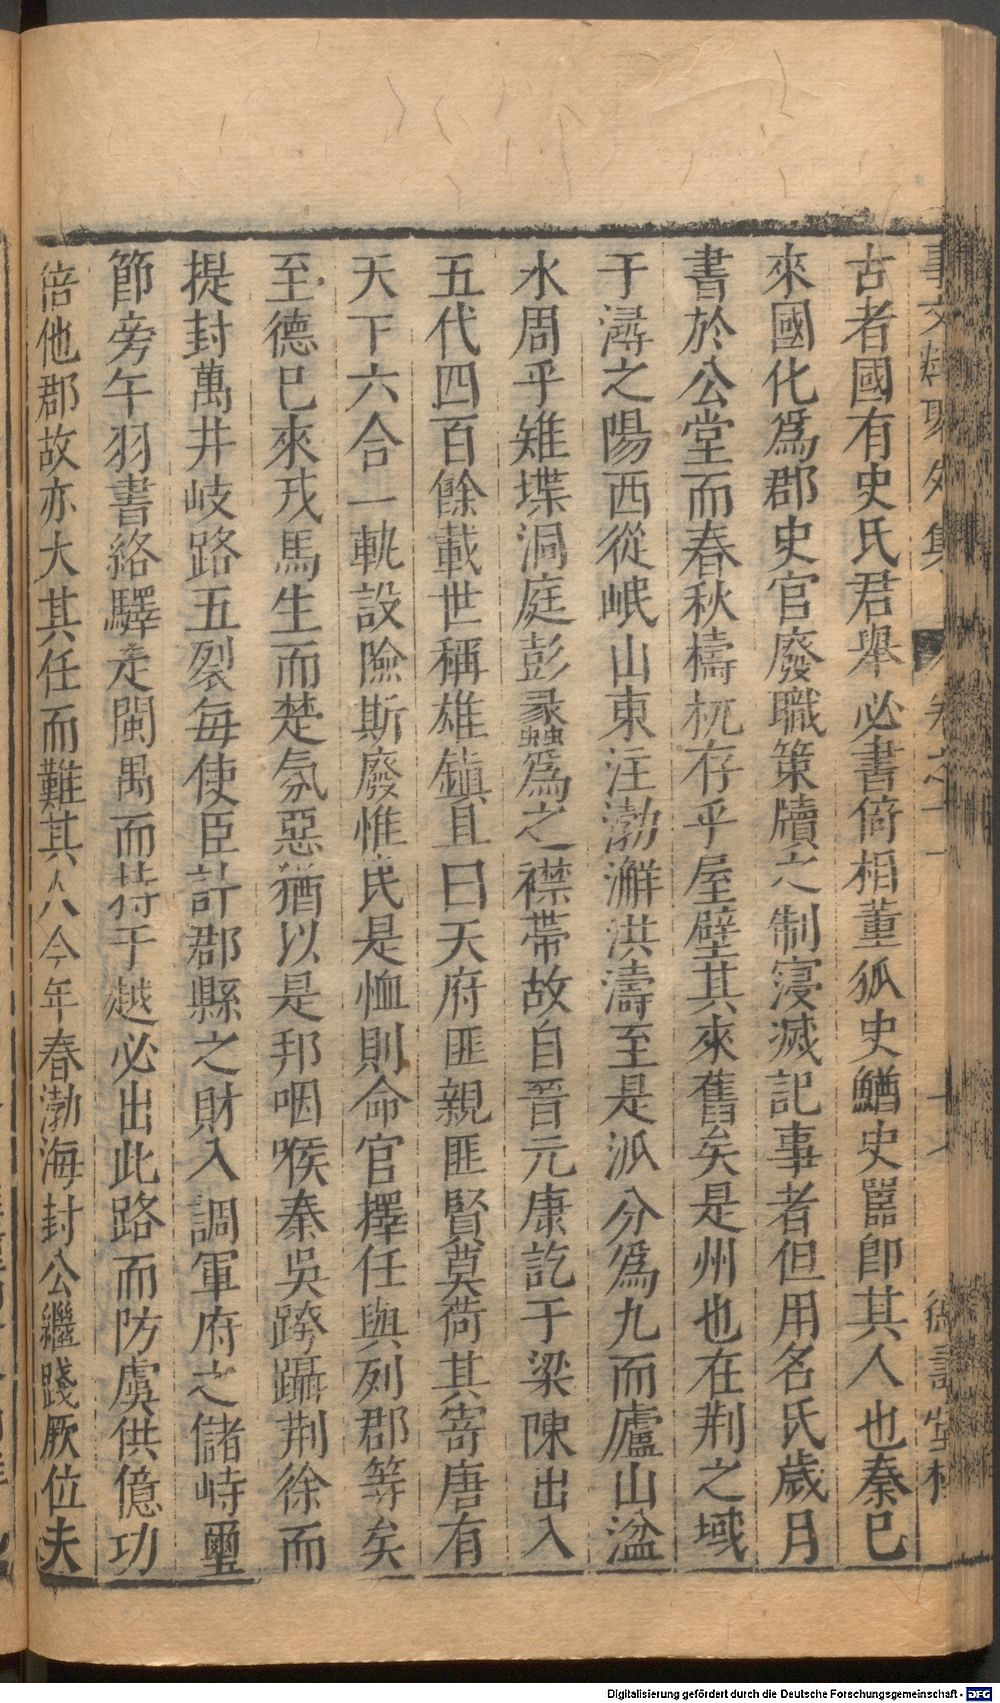 事文類聚外集　卷之十一　德壽堂梓
古者國有史氏君舉必書倚相董狐史鰌史嚚卽其人也秦已
來國化爲郡史官廢職策牘之制寖滅記事者但用名氏歲月
書於公堂而春秋檮杌存乎屋壁其來舊矣是州也在荆之域
于潯之陽西從岷山東注渤澥洪濤至是派分爲九而廬山湓
水周乎雉堞洞庭彭蠡爲之襟帶故自晉元康訖于梁陳出入
五代四百餘載世稱雄鎮且曰天府匪親匪賢莫荷其寄唐有
天下六合一軌設險斯廢惟民是恤則命官擇任與列郡等矣
至德已來戎馬生而楚氛惡猶以是邦咽喉秦吳跨躡荆徐而
提封萬井岐路五裂毎使臣計郡縣之財入調軍府之儲峙璽
節旁午羽書絡驛走閩禺而持于越必出此路而防虞供億功
倍他郡故亦大其任而難其人今年春渤海封公繼踐厥位夫
Digitalisierung gefördert durch die Deutsche Forschungsgemeinschaft - DFG